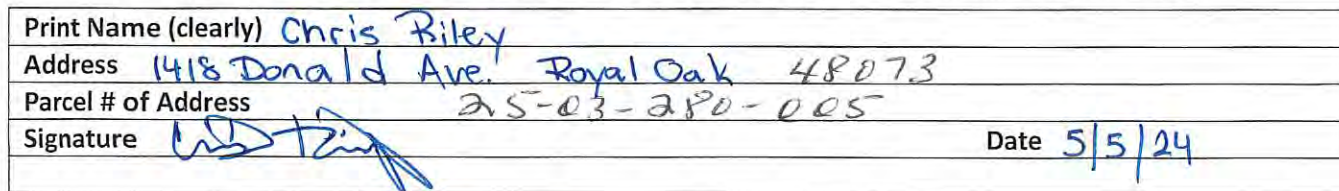 Print Name (clearly) Chris Riley
Address 1418 Donald Ave. Royal Oak 48073
Parcel # of Address 25-03-280-005
Signature Date 5/5/24